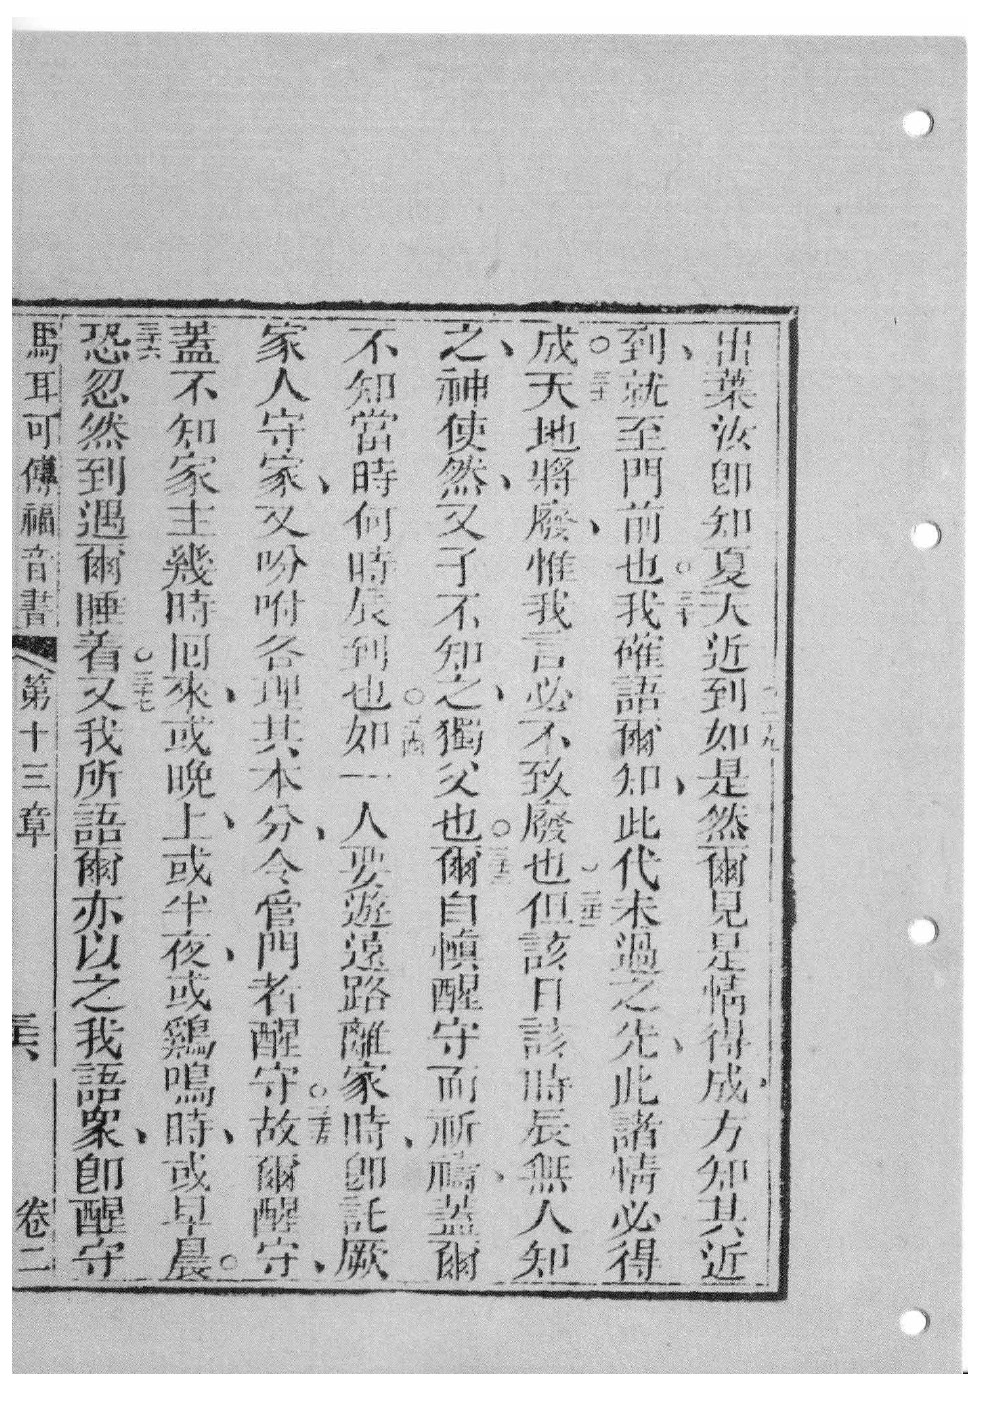 出葉汝卽知夏天近到。二十九如是然爾見是情得成、方知其近
到、就至門前也。三十我確語爾知、此代未過之先、此諸情必得
成。三十一天地將廢、惟我言必不致廢也。三十二但該日該時辰無人知
之、神使然、又子不知之、獨父也。三十三爾自慎醒守而祈禱、蓋爾
不知當時何時辰到也。三十四如一人要遊遠路離家時、卽託厥
家人守家、又吩咐各理其本分、令管門者醒守。三十五故爾醒守、
蓋不知家主幾時回來、或晚上、或半夜、或鷄鳴時、或早晨。
三十六恐忽然到遇爾睡着。三十七又我所語爾亦以之我語衆、卽醒守
馬耳可傳福音書 第十三章 卷二